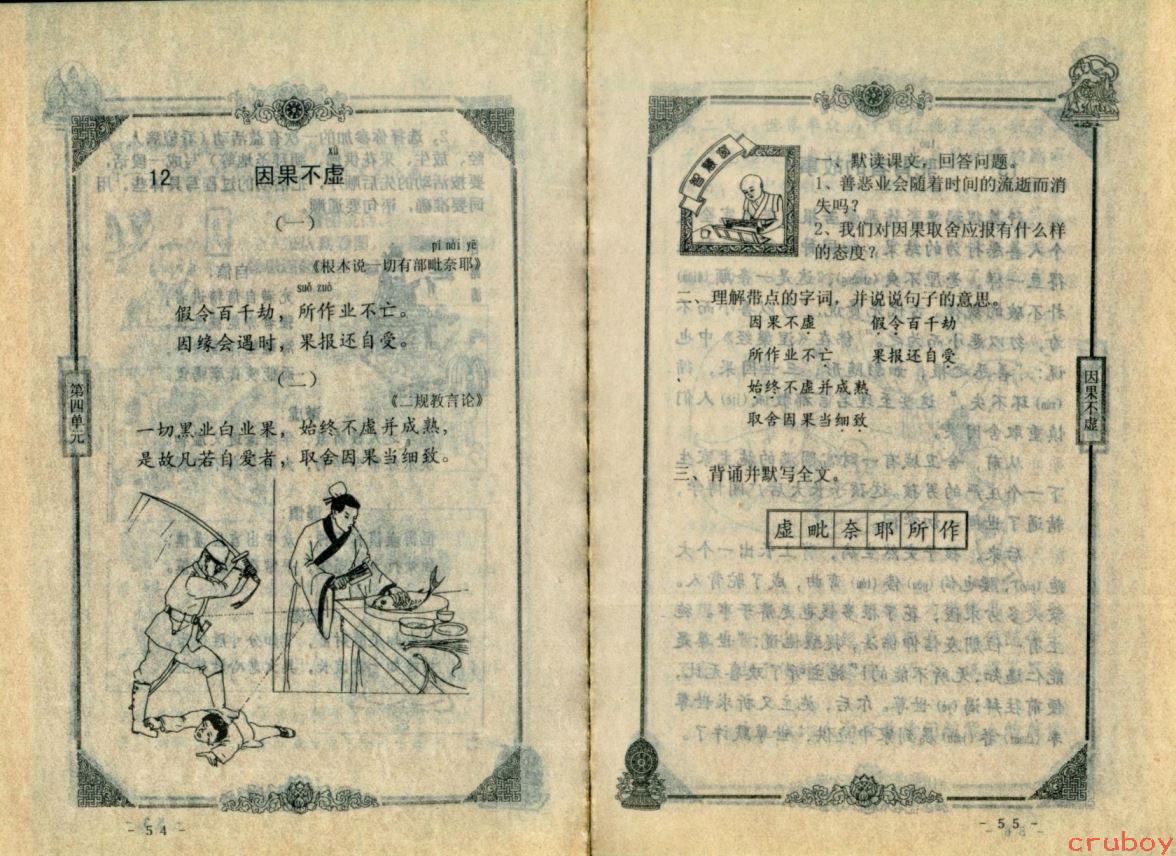 xū
12 因果不虚
（一）
pí nài yē
《根本说一切有部毗奈耶》
suǒ zuò
假令百千劫，所作业不亡。
因缘会遇时，果报还自受。
（二）
《二规教言论》
一切黑业白业果，始终不虚并成熟，
是故凡若自爱者，取舍因果当细致。
第四单元
- 54 -
智慧窗
一、默读课文，回答问题。
1、善恶业会随着时间的流逝而消
失吗？
2、我们对因果取舍应报有什么样
的态度？
二、理解带点的字词，并说说句子的意思。
因果不虚 假令百千劫
所作业不亡 果报还自受
始终不虚并成熟
取舍因果当细致
三、背诵并默写全文。
虚毗奈耶所作
因果不虚
- 55 -
cruboy